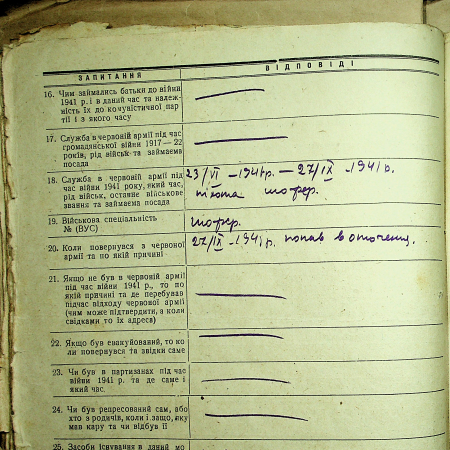 ЗАПИТАННЯ
ВІДПОВІДІ
16. Чим займались батьки до війни
1941 р. і в даний час та належ-
ність їх до комуністичної пар-
тії і з якого часу
17. Служба в червоній армії під час
громадянської війни 1917—22
років, рід військ та займаєма
посада
18. Служба в червоній армії під
час війни 1941 року, який час,
рід військ, останнє військове
звання та займаєма посада
23/VI – 1941 р. – 27/IX – 1941 р.
піхота шофер.
19. Військова спеціальність
№ (ВУС)
шофер.
20. Коли повернувся з червоної
армії та по якій причині
27/IX – 1941 р. попав в оточення.
21. Якщо не був в червоній армії
під час війни 1941 р., то по
якій причині та де перебував
під час відходу червоної армії
(чим може підтвердити, а коли
свідками то їх адреса)
22. Якщо був евакуйований, то ко-
ли повернувся та звідки саме
23. Чи був в партизанах під час
війни 1941 р. та де саме і
який час.
24. Чи був репресований сам, або
хто з родичів, коли і за що, яку
мав кару та чи відбув її
25. Засоби існування в даний мо